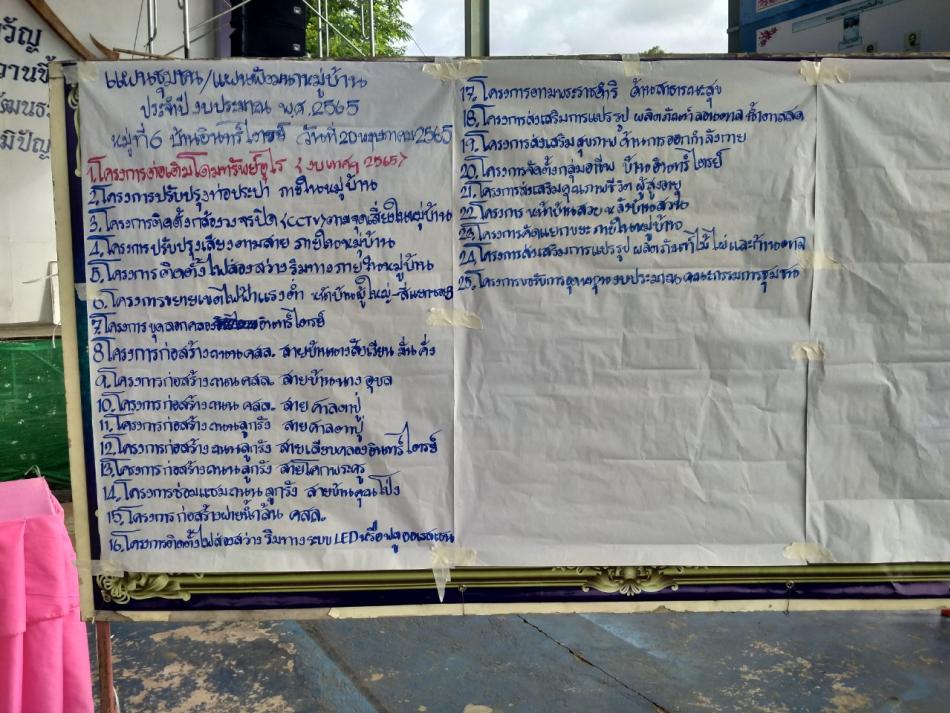 วัญ
วานขึ้
วัฒนธร
มิปัญ
แผนชุมชน/แผนพัฒนาหมู่บ้าน
ประจำปีงบประมาณ พ.ศ.2565
หมู่ที่ 6 บ้านอินทร์ไอรย์ (วันที่ 20 พฤษภาคม 2565
1.โครงการต่อเติมโดมทรัพย์อุไร (งบเทศฯ 2565)
2.โครงการปรับปรุงท่อประปา ภายในหมู่บ้าน
3.โครงการติดตั้งกล้องวงจรปิด (CCTV) ตามจุดเสี่ยงในหมู่บ้าน
4.โครงการปรับปรุงเสียงตามสาย ภายในหมู่บ้าน
5.โครงการติดตั้งไฟส่องสว่างริมทางภายในหมู่บ้าน
6.โครงการขยายเขตไฟฟ้าแรงต่ำ หน้าบ้านผู้ใหญ่-สี่แยก
7.โครงการขุดลอกคลองอินทร์ไอรย์
8.โครงการก่อสร้างถนน คสล. สายบ้านนางสังเวียน ลิ้นคิ่ง
9.โครงการก่อสร้างถนน คสล. สายบ้านนาง อุบล
10.โครงการก่อสร้างถนน คสล. สาย ศาลตาปู่
11.โครงการก่อสร้างถนนลูกรัง สายศาลตาปู่
12.โครงการก่อสร้างถนนลูกรัง สายเลียบคลองอินทร์ไอรย์
13.โครงการก่อสร้างถนนลูกรัง สายโคกพระครู
14.โครงการซ่อมแซมถนนลูกรัง สายบ้านคุณโป่ง
15.โครงการก่อสร้างฝายน้ำล้น คสล.
16.โครงการติดตั้งไฟส่องสว่างริมทางระบบ LED หรือฟลูออเรสเซน
17.โครงการตามพระราชดำริ ด้านสาธารณะสุข
18.โครงการส่งเสริมการแปรรูป ผลิตภัณฑ์ลอนตาล น้ำตาลสด
19.โครงการส่งเสริมสุขภาพด้านการออกกำลังกาย
20.โครงการจัดตั้งกลุ่มอาชีพ บ้านอินทร์ไอรย์
21.โครงการส่งเสริมคุณภาพชีวิต ผู้สูงอายุ
22.โครงการ หน้าบ้านสวย หลังบ้านสวน
23.โครงการคัดแยกขยะภายในหมู่บ้าน
24.โครงการส่งเสริมการแปรรูป ผลิตภัณฑ์ไม้ไผ่และก้านตาล
25.โครงการขอรับการอุดหนุนงบประมาณคณะกรรมการชุมชน